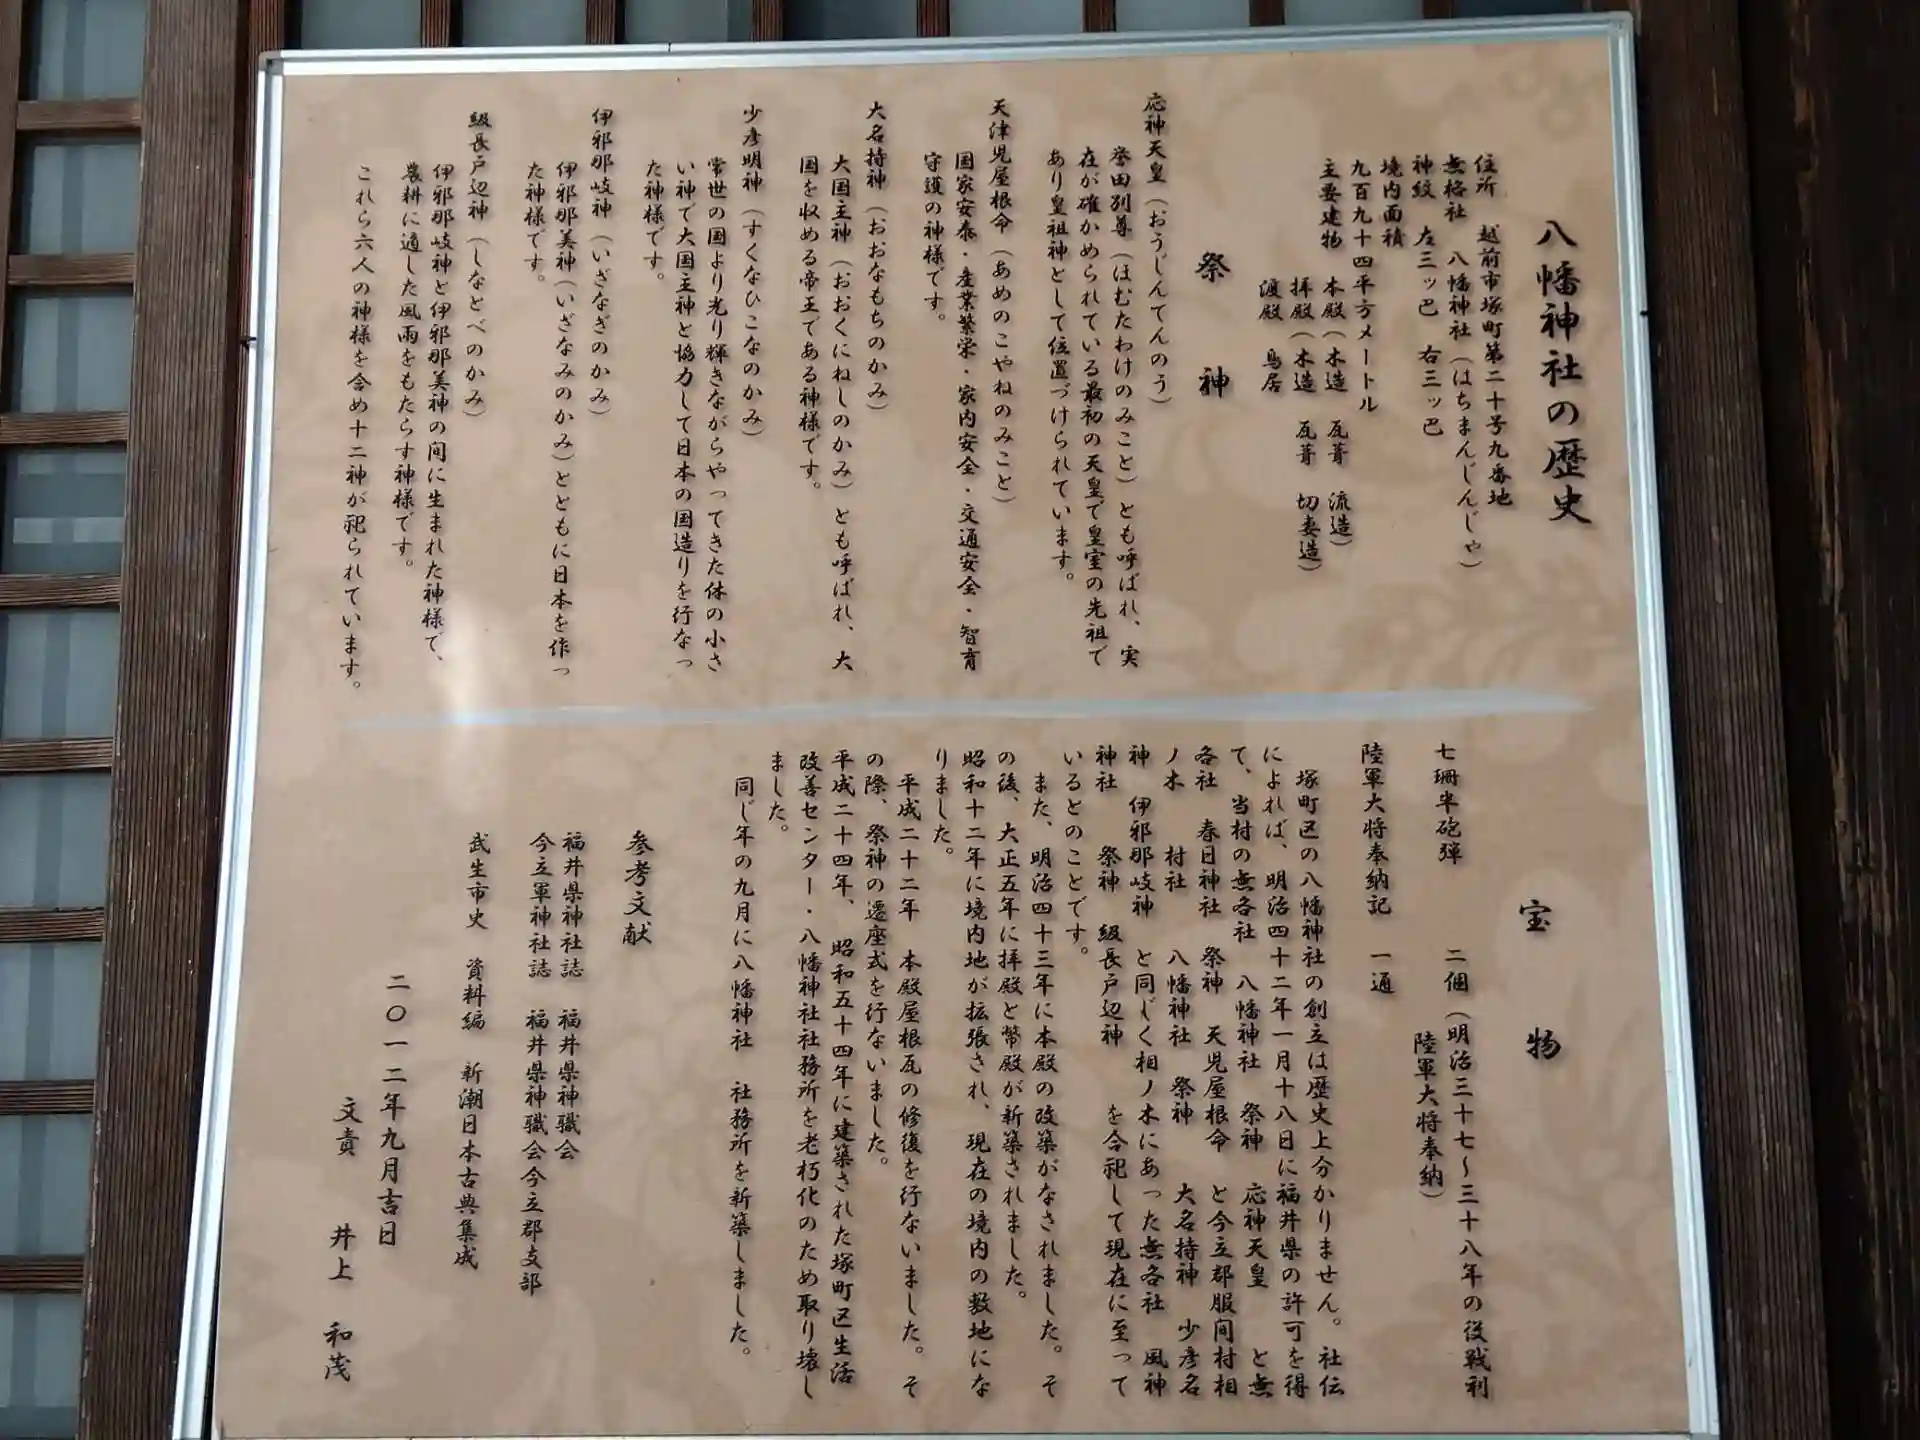 八幡神社の歴史
住所　越前市塚町第二十号九番地
無格社　八幡神社（はちまんじんじゃ）
神紋　左三ッ巴　右三ッ巴
境内面積
九百九十四平方メートル
主要建物　本殿（木造　瓦葺　流造）
拝殿（木造　瓦葺　切妻造）
渡殿　鳥居
祭　神
応神天皇（おうじんてんのう）
誉田別尊（ほむたわけのみこと）とも呼ばれ、実
在が確かめられている最初の天皇で皇室の先祖で
あり皇祖神として位置づけられています。
天津児屋根命（あめのこやねのみこと）
国家安泰・産業繁栄・家内安全・交通安全・智育
守護の神様です。
大名持神（おおなもちのかみ）
大国主神（おおくにねしのかみ）とも呼ばれ、大
国を収める帝王である神様です。
少彦明神（すくなひこなのかみ）
常世の国より光り輝きながらやってきた体の小さ
い神で大国主神と協力して日本の国造りを行なっ
た神様です。
伊邪那岐神（いざなぎのかみ）
伊邪那美神（いざなみのかみ）とともに日本を作っ
た神様です。
級長戸辺神（しなとべのかみ）
伊邪那岐神と伊邪那美神の間に生まれた神様で、
農耕に適した風雨をもたらす神様です。
これら六人の神様を含め十二神が祀られています。
宝　物
七珊半砲弾　二個（明治三十七～三十八年の役戦利
陸軍大将奉納）
陸軍大将奉納記　一通
塚町区の八幡神社の創立は歴史上分かりません。社伝
によれば、明治四十二年一月十八日に福井県の許可を得
て、当村の無各社　八幡神社　祭神　応神天皇　と無
各社　春日神社　祭神　天児屋根命　と今立郡服間村相
ノ木　村社　八幡神社　祭神　大名持神　少彦名
神　伊邪那岐神　と同じく相ノ木にあった無各社　風神
神社　祭神　級長戸辺神　を合祀して現在に至って
いるとのことです。
また、明治四十三年に本殿の改築がなされました。そ
の後、大正五年に拝殿と幣殿が新築されました。
昭和十二年に境内地が拡張され、現在の境内の敷地にな
りました。
平成二十二年　本殿屋根瓦の修復を行ないました。そ
の際、祭神の遷座式を行ないました。
平成二十四年、昭和五十四年に建築された塚町区生活
改善センター・八幡神社社務所を老朽化のため取り壊し
ました。
同じ年の九月に八幡神社　社務所を新築しました。
参考文献
福井県神社誌　福井県神職会
今立軍神社誌　福井県神職会今立郡支部
武生市史　資料編　新潮日本古典集成
二〇一二年九月吉日
文責　井上　和茂